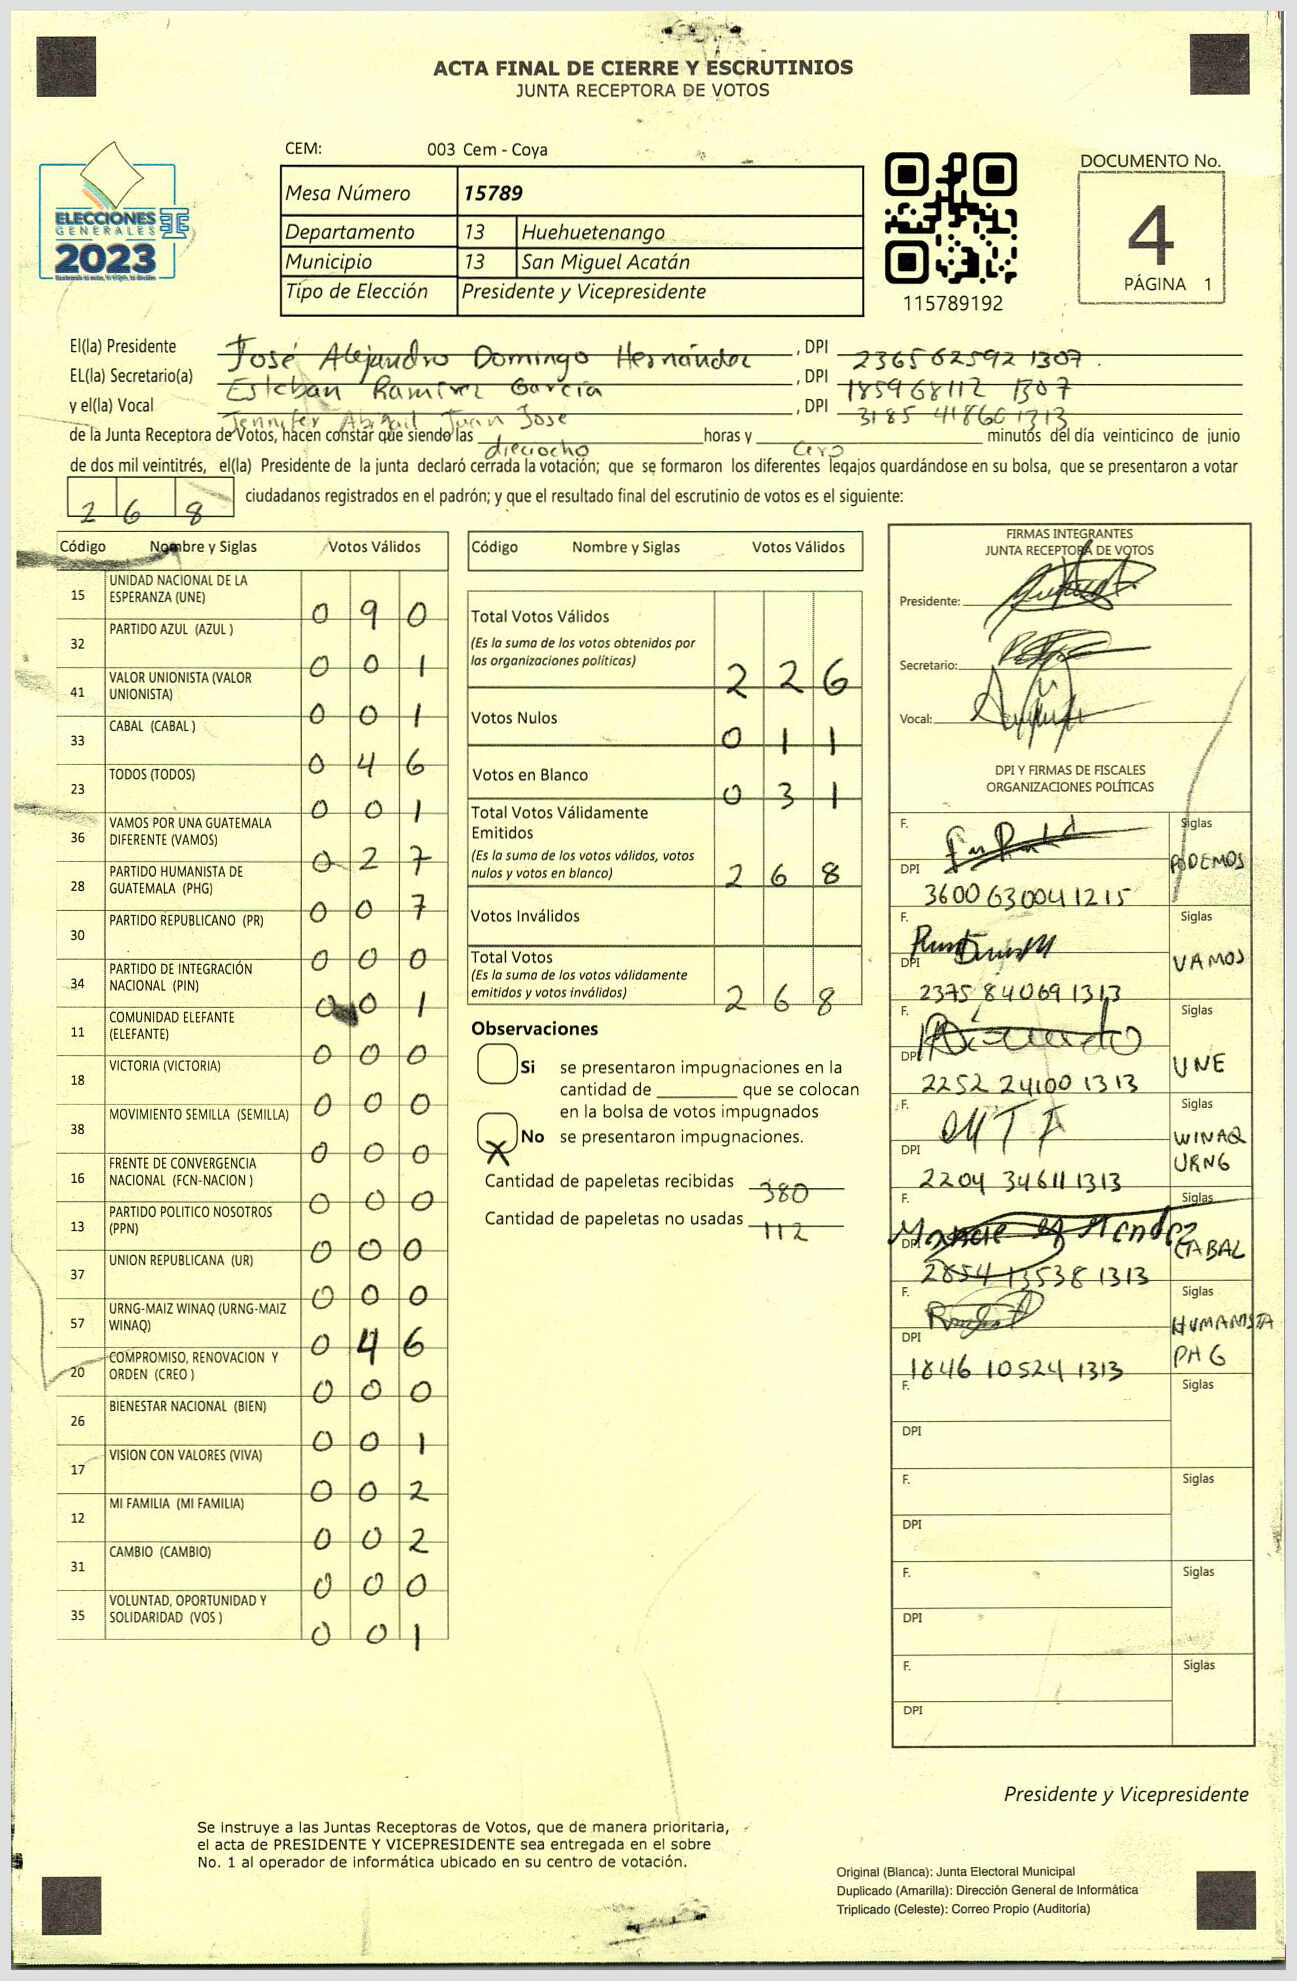 ACTA FINAL DE CIERRE Y ESCRUTINIOS
JUNTA RECEPTORA DE VOTOS
CEM: 003 Cem - Coya
Mesa Número 15789
Departamento 13 Huehuetenango
Municipio 13 San Miguel Acatán
Tipo de Elección Presidente y Vicepresidente
ELECCIONES
GENERALES
2023
115789192
DOCUMENTO No.
4
PÁGINA 1
El(la) Presidente José Alejandro Domingo Hernández , DPI 2365625921307
EL(la) Secretario(a) Esteban Ramírez García , DPI 185968112 1307
y el(la) Vocal Jennifer Abigail Juan José , DPI 3185 41860 1313
de la Junta Receptora de Votos, hacen constar que siendo las dieciocho horas y cero minutos del día veinticinco de junio
de dos mil veintitrés, el(la) Presidente de la junta declaró cerrada la votación; que se formaron los diferentes legajos quardándose en su bolsa, que se presentaron a votar
2 6 8 ciudadanos registrados en el padrón; y que el resultado final del escrutinio de votos es el siguiente:
Código Nombre y Siglas Votos Válidos
15 UNIDAD NACIONAL DE LA ESPERANZA (UNE) 0 9 0
32 PARTIDO AZUL (AZUL ) 0 0 1
41 VALOR UNIONISTA (VALOR UNIONISTA) 0 0 1
33 CABAL (CABAL ) 0 4 6
23 TODOS (TODOS) 0 0 1
36 VAMOS POR UNA GUATEMALA DIFERENTE (VAMOS) 0 2 7
28 PARTIDO HUMANISTA DE GUATEMALA (PHG) 0 0 7
30 PARTIDO REPUBLICANO (PR) 0 0 0
34 PARTIDO DE INTEGRACIÓN NACIONAL (PIN) 0 0 1
11 COMUNIDAD ELEFANTE (ELEFANTE) 0 0 0
18 VICTORIA (VICTORIA) 0 0 0
38 MOVIMIENTO SEMILLA (SEMILLA) 0 0 0
16 FRENTE DE CONVERGENCIA NACIONAL (FCN-NACION ) 0 0 0
13 PARTIDO POLITICO NOSOTROS (PPN) 0 0 0
37 UNION REPUBLICANA (UR) 0 0 0
57 URNG-MAIZ WINAQ (URNG-MAIZ WINAQ) 0 4 6
20 COMPROMISO, RENOVACION Y ORDEN (CREO ) 0 0 0
26 BIENESTAR NACIONAL (BIEN) 0 0 1
17 VISION CON VALORES (VIVA) 0 0 2
12 MI FAMILIA (MI FAMILIA) 0 0 2
31 CAMBIO (CAMBIO) 0 0 0
35 VOLUNTAD, OPORTUNIDAD Y SOLIDARIDAD (VOS ) 0 0 1
Código Nombre y Siglas Votos Válidos
Total Votos Válidos
(Es la suma de los votos obtenidos por
las organizaciones políticas) 2 2 6
Votos Nulos 0 1 1
Votos en Blanco 0 3 1
Total Votos Válidamente
Emitidos
(Es la suma de los votos válidos, votos
nulos y votos en blanco) 2 6 8
Votos Inválidos
Total Votos
(Es la suma de los votos válidamente
emitidos y votos inválidos) 2 6 8
Observaciones
Si se presentaron impugnaciones en la
cantidad de ________ que se colocan
en la bolsa de votos impugnados
X No se presentaron impugnaciones.
Cantidad de papeletas recibidas 380
Cantidad de papeletas no usadas 112
FIRMAS INTEGRANTES
JUNTA RECEPTORA DE VOTOS
Presidente:
Secretario:
Vocal:
DPI Y FIRMAS DE FISCALES
ORGANIZACIONES POLÍTICAS
F. Siglas
DPI 3600 63004 1215 PODEMOS
F. Siglas
DPI 2375 84069 1313 VAMOS
F. Siglas
DPI 2252 24100 1313 UNE
F. Siglas
DPI 2204 34611 1313 WINAQ URNG
F. Siglas
DPI 2854 13538 1313 CABAL
F. Siglas
DPI 1846 10524 1313 HUMANISTA PHG
F. Siglas
DPI
F. Siglas
DPI
F. Siglas
DPI
F. Siglas
DPI
Presidente y Vicepresidente
Se instruye a las Juntas Receptoras de Votos, que de manera prioritaria,
el acta de PRESIDENTE Y VICEPRESIDENTE sea entregada en el sobre
No. 1 al operador de informática ubicado en su centro de votación.
Original (Blanca): Junta Electoral Municipal
Duplicado (Amarilla): Dirección General de Informática
Triplicado (Celeste): Correo Propio (Auditoría)